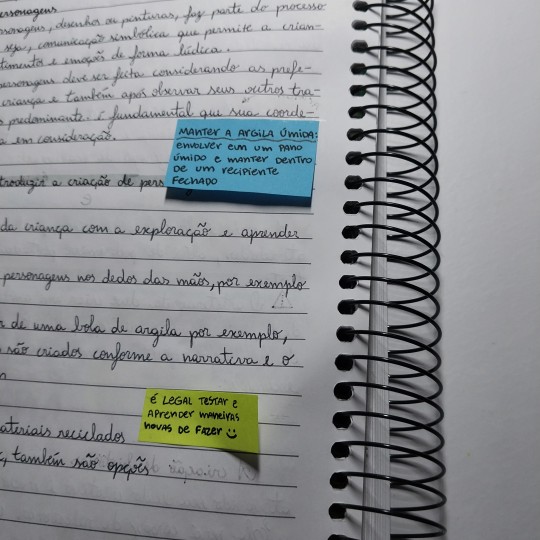 ersonagens
sonagens, desenhos ou pinturas, faz parte do processo
seja, comunicação simbólica que permite a crian-
timentos e emoções de forma lúdica.
ersonagens deve ser feita considerando as prefe-
criança e também após observar seus outros tra-
s predominante. é fundamental que sua coorde-
a em consideração.
MANTER A ARGILA ÚMIDA:
ENVOLVER EM UM PANO
ÚMIDO E MANTER DENTRO
DE UM RECIPIENTE
FECHADO
troduzir a criação de pers
da criança com a exploração e aprender
personagens nos dedos das mãos, por exemplo
r de uma bola de argila por exemplo,
são criados conforme a narrativa e o
É LEGAL TESTAR E
APRENDER MANEIRAS
NOVAS DE FAZER
ateriais reciclados
, também são opções